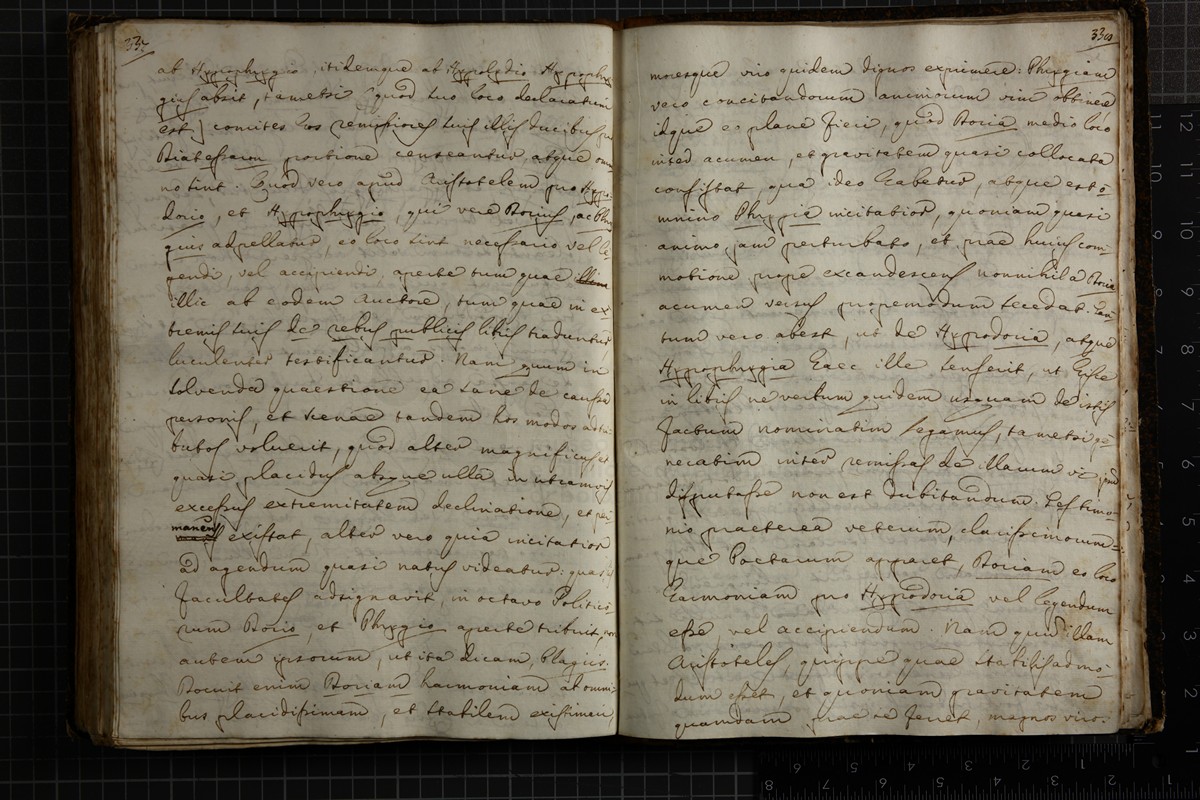 337
ab Hypophrygio, itidemque ab Hypolydio Hypophry
gius absit, tametsi (quod suo loco declaratum
est) comites hos remissiores suis illis ducibus
Diatessaron portione censeantur, atque
no sint. Quod vero apud Aristotelem pro Hypo
dorio, et Hypophrygio, qui vere Dorius, ac Phry
gius adpellatur, eo loco sint necessario vel le
gendi, vel accipiendi, aperte tum quae
illic ab eodem Auctore, tum quae in ex
tremis suis de rebus publicis libris traduntur
luculenter testificantur. Nam quum in
solvenda quaestione ea sane de caussa
personis, et scenae tandem hos modos adtri
butos voluerit, quod alter magnificus, et
quasi placidus absque ulla in utramvis
excessus extremitatem declinatione, et per
manens existat, alter vero quia incitatior
ad agendum quasi natus videatur: quas
facultates adsignavit, in octavo Politico
rum Dorio, et Phrygio aperte tribuit, non
autem ipsorum, ut ita dicam, Plagiis.
Docuit enim Doriam harmoniam ab omni-
bus placidissimam, et stabilem existimari,
338
moresque viro quidem dignos exprimere: Phrygiam
vero concitandorum animorum vim obtinere
idque eo plane fieri, quod Doria medio loco
inter acumen, et gravitatem quasi collocata
consistat, qua ideo habetur, atque est o-
mnino Phrygia incitatior, quoniam quasi
animo jam perturbato, et prae huius com-
motione prope excandescens nonnihil a Doria
acumen versus propemodum secedat. Tan-
tum vero abest, ut de Hypodoria, atque
Hypophrygia haec ille senserit, ut hisce
in libris ne verbum quidem usquam de istis
factum nominatim legamus, tametsi ge-
neratim inter remissas de illarum vi
disputasse non est dubitandum. Testimo-
nio praeterea veterum, clarissimorum-
que Poetarum apparet, Doriam eo loco
harmoniam pro Hypodoria vel legendum
esse, vel accipiendum. Nam quum illam
Aristoteles, quippe quae stabilis admo-
dum esset, et quoniam gravitatem
quamdam prae se feret, magnos viro-